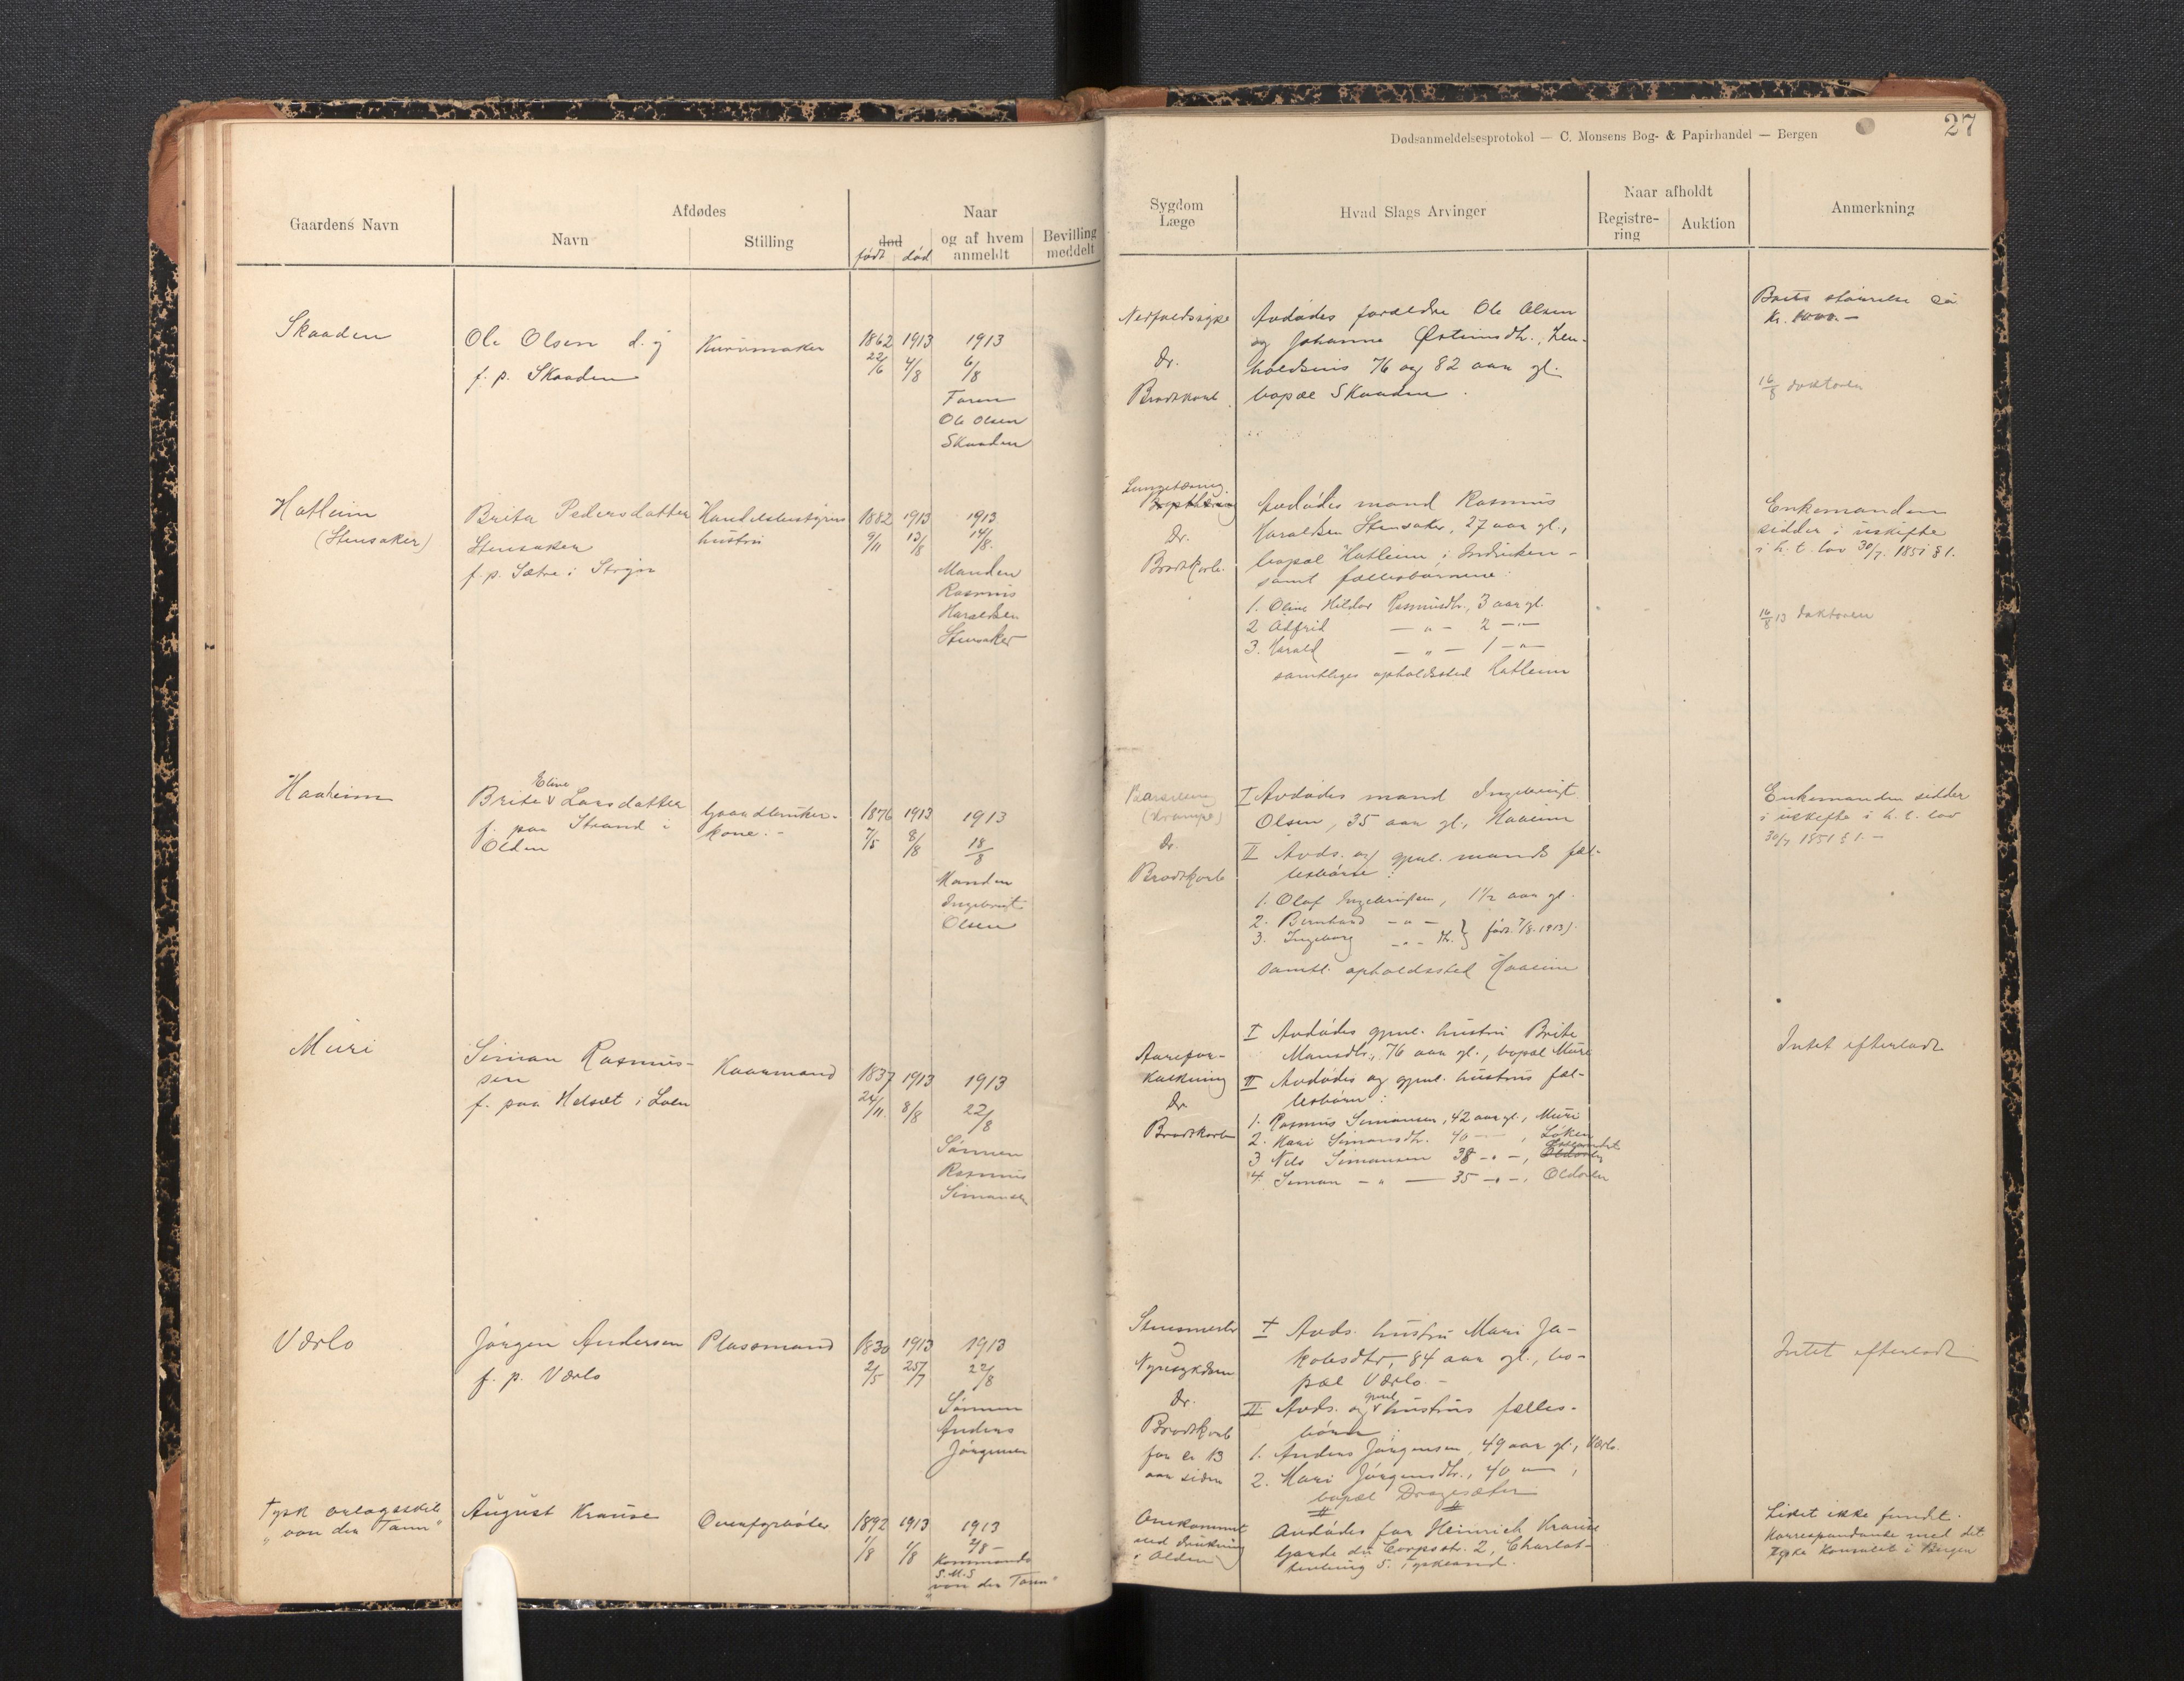 Dødsanmeldelsesprotokol — C. Monsens Bog- & Papirhandel — Bergen
27
Gaardens Navn
Afdødes
Navn
Stilling
Naar
død
født død
og af hvem
anmeldt
Bevilling
meddelt
Sygdom
Læge
Hvad Slags Arvinger
Naar afholdt
Registre-
ring
Auktion
Anmerkning
Skaaden
Ole Olsen d. y
f. p. Skaaden
Kurvmaker
1862 1913 1913
22/6 4/8 6/8
Faren
Ole Olsen
Skaaden
Nedfaldssyke
Dr.
Brodtkorb
Avdødes forældre Ole Olsen
og Johanne Østensdtr., hen-
holdsvis 76 og 82 aar gl.
bopæl Skaaden.
Boets størrelse ca
Kr. 1000.-
16/8 doktoren
Hatleim
(Stensaker)
Brita Pedersdatter
Stensaker
f. p. Sætre i Stryn
Handelsbestyrers
hustru
1882 1913 1913
9/11 13/8 14/8.
Manden
Rasmus
Haraldsen
Stensaker
Lungetæring
Dr.
Brodtkorb.
Avdødes mand Rasmus
Haraldsen Stensaker, 27 aar gl.,
bopæl Hatleim i Indviken -
samt fællesbørnene:
1. Oline Hildur Rasmusdtr., 3 aar gl.
2 Alfrid — " — 2 — " —
3. Harald — " — 1 — " —
samtliges opholdssted Hatleim
Enkemanden
sidder i uskifte
i h. t. lov 30/7. 1851 § 1.
16/8 13 doktoren
Haaheim
Eline
Brite v Larsdatter
f. paa Strand i
Olden
Gaardbruker-
kone. -
1876 1913 1913
7/5 8/8 18/8
Manden
Ingebrigt
Olsen
Barselseng
(Krampe)
Dr.
Brodtkorb
I Avdødes mand Ingebrigt
Olsen, 35 aar gl., Haaeim
II Avds. og gjenl. mands fæl-
lesbørn:
1. Olaf Ingebrigtsen, 1 1/2 aar gl.
2. Bernhard — " —
3. Ingeborg — " — dtr. } født 7/8. 1913).
Samtl. opholdssted Haaeim
Enkemanden sidder
i uskifte i h. t. lov
30/7 1851 § 1. -
Muri
Simon Rasmus-
sen
f. paa Helset i Loen
Kaarmand
1837 1913 1913
24/11. 8/8 22/8
Sønnen
Rasmus
Simonsen
Aarefor-
kalkning
Dr
Brodtkorb
I Avdødes gjenl. hustru Brite
Monsdtr., 76 aar gl., bopæl Muri
II Avdødes og gjenl. hustrus fæl-
lesbørn:
1. Rasmus Simonsen, 42 aar gl., Muri
2. Kari Simonsdtr. 40 — , Løken
3 Nils Simonsen 38 - " -,
4 Simon - " — 35 - " -, Oldøren
Intet efterladt
Værlo
Jørgen Andersen
f. p. Værlo
Plassmand
1830 1913 1913
2/5 25/7 22/8
Sønnen
Anders
Jørgensen
Nyresykdom
Dr.
Brodtkorb
for en 13
aar siden
I Avds. hustru Mari Ja-
kobsdtr, 84 aar gl., bo-
pæl Værlo -
II Avds. og gjenl. hustrus fælles-
børn:
1. Anders Jørgensen, 49 aar gl., Værlo.
2. Mari Jørgensdtr., 40 — ,
bopæl Dragesæter
Intet efterladt
Tysk orlogsskib
"von der Tann"
August Krause
Overfyrbøter
1892 1913 1913
1/8 1/8 2/8 -
Kommando
S. M. S
"von der Tann"
Omkommet
ved drukning
i Olden
Avdødes far Heinrich Krause
Garde du Corpsstr. 2, Charlot-
tenburg 5. Tyskland.
Liket ikke fundt.
Korrespondance med det
tyske Konsulat i Bergen